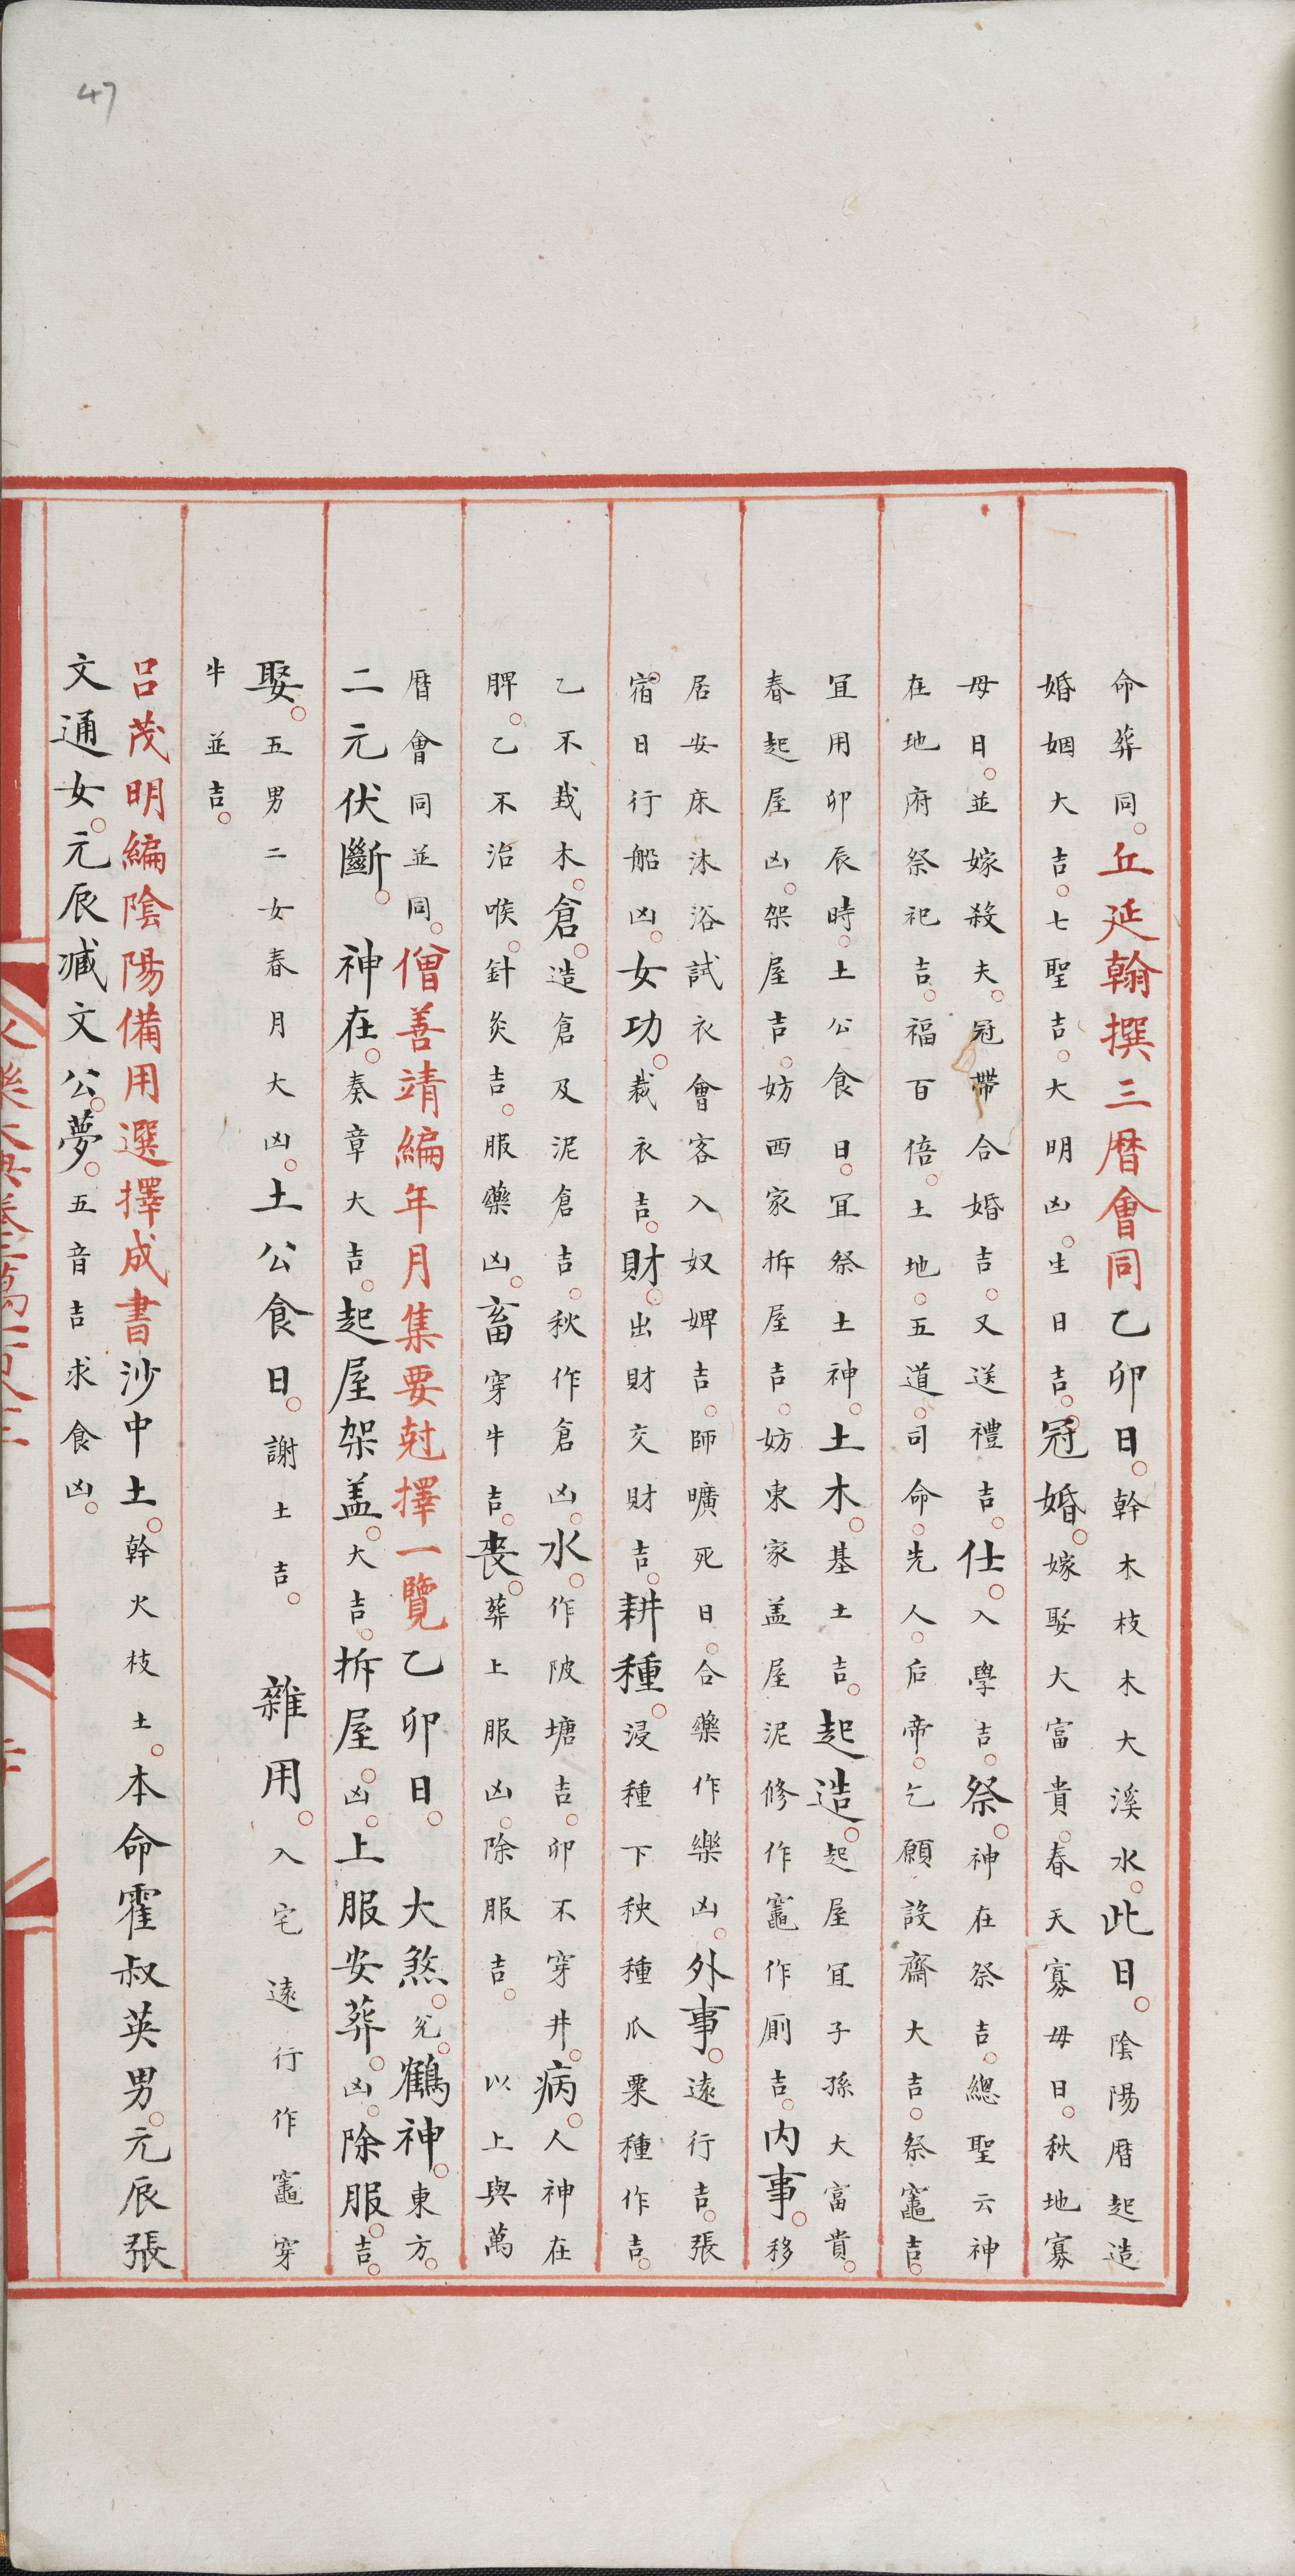 47
命葬同。丘延翰撰三曆會同乙卯日。幹木枝木大溪水。此日。陰陽曆起造
婚姻大吉。七聖吉。大明凶。生日吉。冠婚。嫁娶大富貴。春天寡毋日。秋地寡
毋日。並嫁殺夫。冠帶合婚吉。又送禮吉。仕。入學吉。祭。神在祭吉。總聖云神
在地府祭祀吉。福百倍。土地。五道。司命。先人。后帝。乞願設齋大吉。祭竈吉。
宜用卯辰時。土公食日。宜祭土神。土木。基土吉。起造。起屋宜子孫大富貴。
春起屋凶。架屋吉。妨西家拆屋吉。妨東家盖屋泥修作竈作廁吉。內事。移
居安床沐浴試衣會客入奴婢吉。師曠死日。合藥作樂凶。外事。遠行吉。張
宿日行船凶。女功。裁衣吉。財。出財交財吉。耕種。浸種下秧種瓜粟種作吉。
乙不栽木。倉。造倉及泥倉吉。秋作倉凶。水。作陂塘吉。卯不穿井。病。人神在
脾。乙不治喉。針灸吉。服藥凶。畜穿牛吉。喪。葬上服凶。除服吉。以上與萬
曆會同並同。僧善靖編年月集要尅擇一覽乙卯日。大煞。兊。鶴神。東方。
二元伏斷。神在。奏章大吉。起屋架盖。大吉。拆屋。凶。上服安葬。凶。除服。吉。
娶。五男二女春月大凶。土公食日。謝土吉。雜用。入宅遠行作竈穿
牛並吉。
吕茂明編陰陽備用選擇成書沙中土。幹火枝土。本命霍叔英男。元辰張
文通女。元辰臧文公。夢。五音吉求食凶。